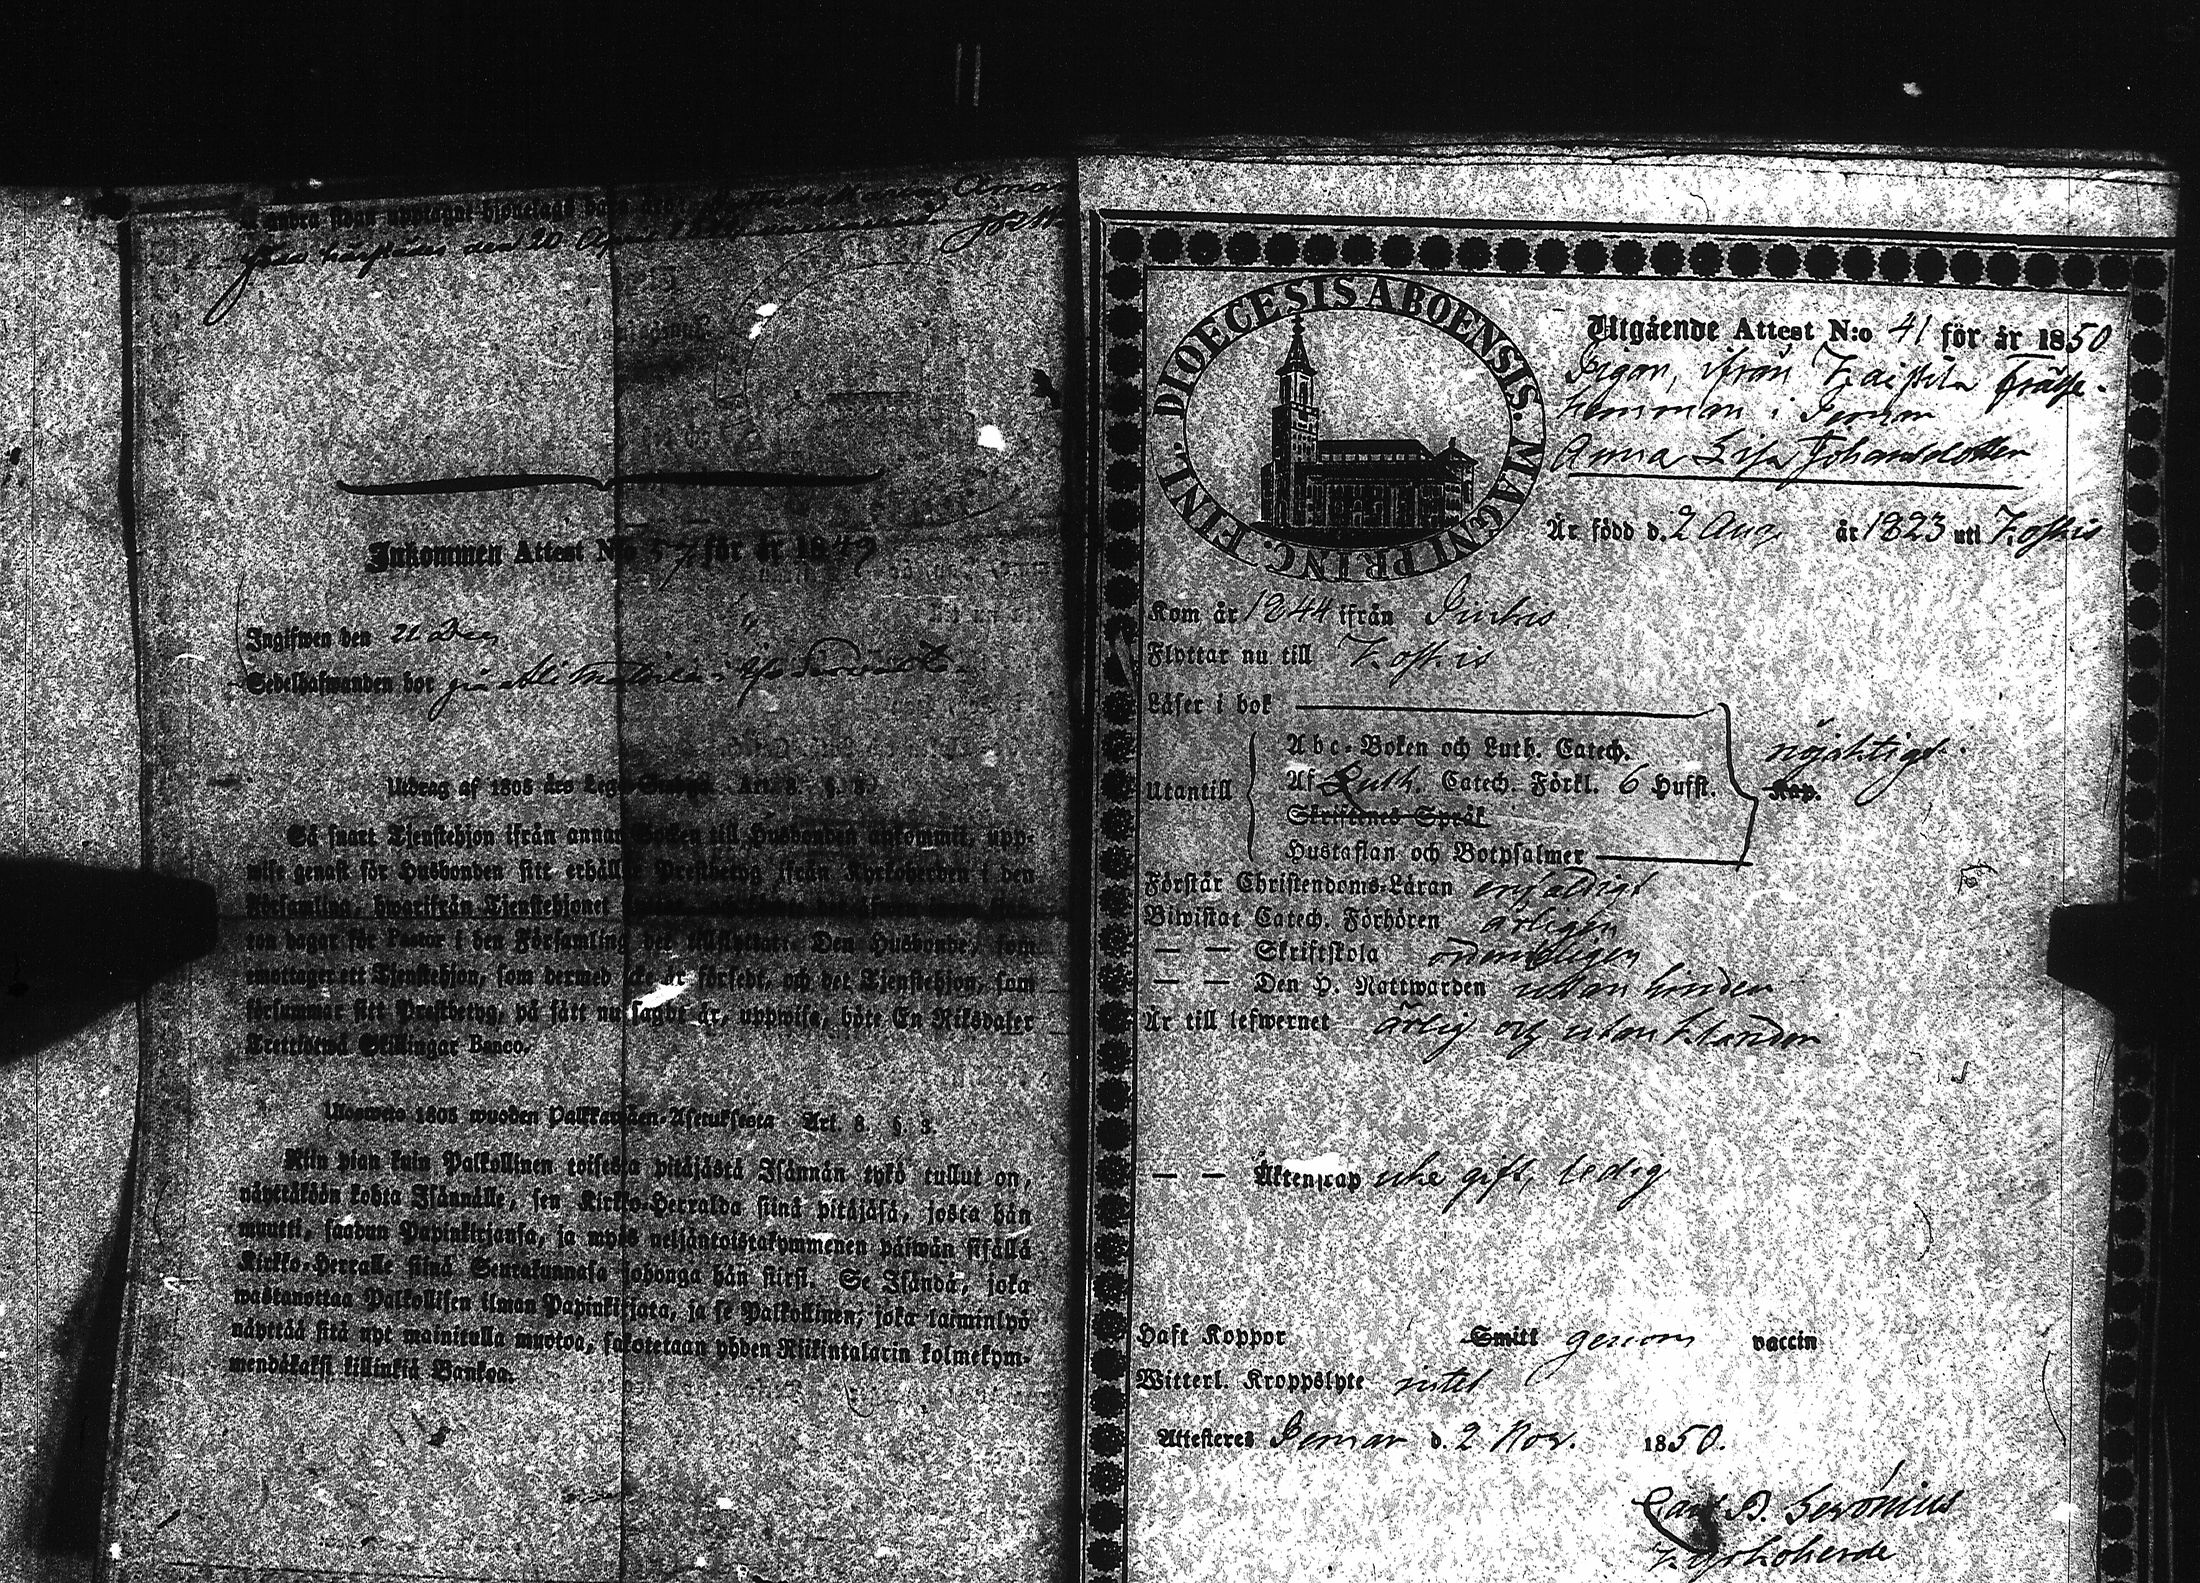 från härstädes den 20 April
Inkommen Attest N:o 57 för år 1849
Ingifwen den 21 Dec
Sedelhafwanden bor
Utdrag af 1805 års Lego-Stadga. Art. 8. §. 3.
Så snart Tjenstehjon ifrån annan Socken till Husbonden ankommit, upp-
wise genast för Husbonden sitt erhållna Prestbetyg ifrån Kyrkoherden i den
Församling, hwarifrån Tjenstehjonet
ton dagar för Pastor i den Församling dit inflyttat. Den Husbonde, som
emottager ett Tjenstehjon, som dermed icke är försedt, och det Tjenstehjon, som
försummar sitt Prestbetyg, på sätt nu sagdt är, uppwisa, böte En Riksdaler
Trettiotwå Skillingar Banco.
Ulosweto 1805 wuoden Palkkawäen-Asetuksesta Art. 8. §. 3.
Niin pian kuin Palkollinen toisesta pitäjästä Isännän tykö tullut on,
näyttäköön kohta Isännälle, sen Kirkko-Herralda siinä pitäjäsä, josta hän
muutti, saadun Papinkirjansa, ja myös neljäntoistakymmenen päiwän sisällä
Kirkko-Herralle siinä Seurakunnasa johonga hän siirsi. Se Isändä, joka
wastanottaa Palkollisen ilman Papinkirjata, ja se Palkollinen, joka laiminlyö
näyttää sitä nyt mainitulla muotoa, sakotetaan yhden Riikintalarin kolmekym-
mendäkaksi killinkiä Bankoa.
DIOECESIS ABOENSIS. MAGNI PRINC. FINL.
Utgående Attest N:o 41 för år 1850
Pigan, ifrån Kaistila Frälse-
hemman i Pemar
Anna Lisa Johansdotter
Är född d. 2 Aug år 1823 uti Koskis
Kom år 1844 ifrån
Flyttar nu till Koskis
Läser i bok
Utantill
Abc-Boken och Luth. Catech.
Af Luth. Catech. Förkl. 6 Hufst.
Skriftenes Språk
Hustaflan och Botpsalmer
nöjaktigt
Kap.
Förstår Christendoms-Läran enfaldigt
Biwistat Catech. Förhören årligen
— — Skriftskola ordentligen
— — Den H. Nattwarden utan hinder
Är till lefwernet ärlig och utan klander
— — Äktenskap icke gift, ledig
Haft Koppor Smitt genom vaccin
Witterl. Kroppslyte intet
Attesteres Pemar d. 2 Nov. 1850.
Carl D.
Kyrkoherde